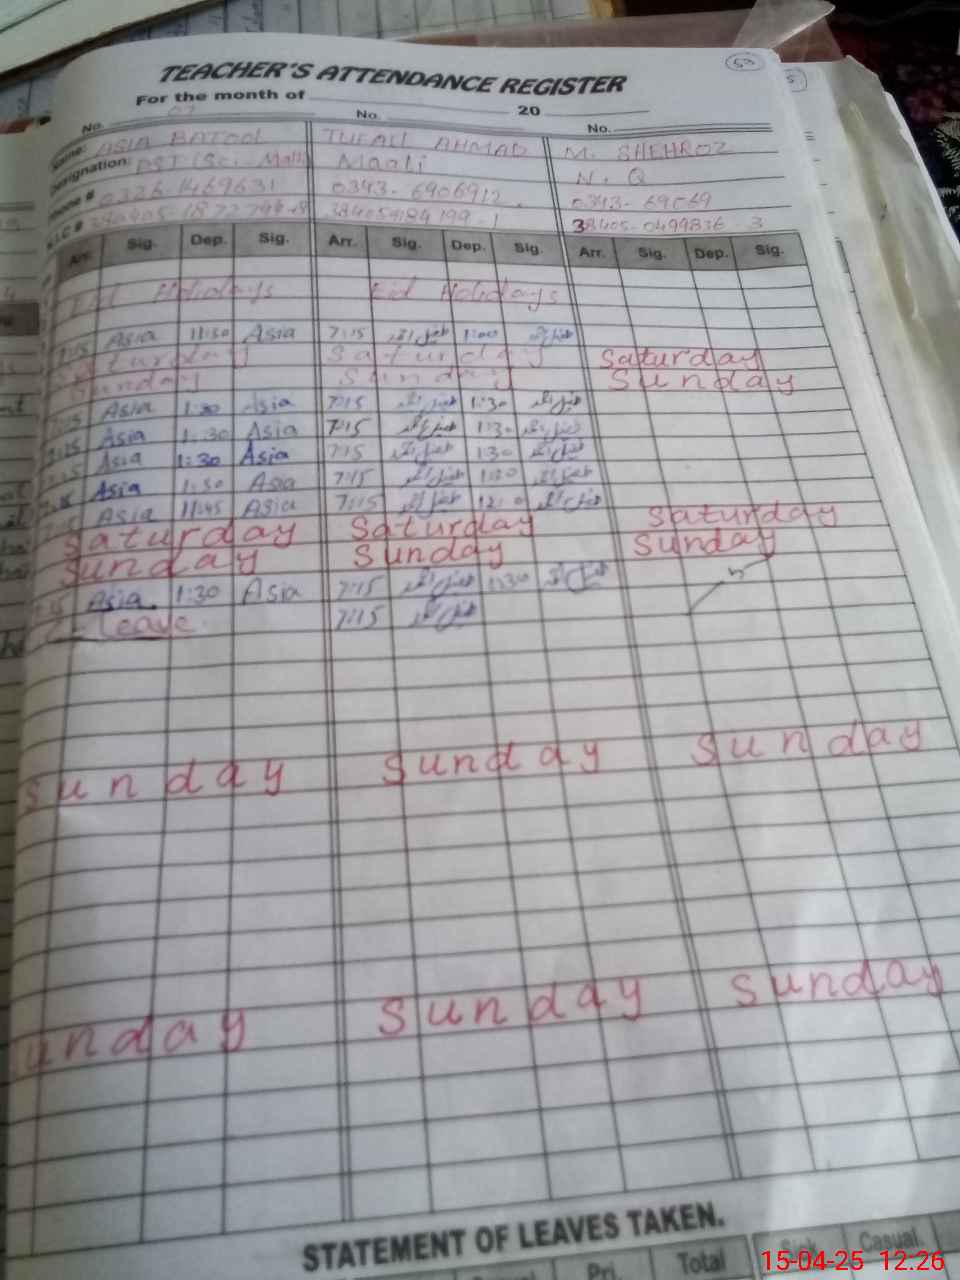 53
TEACHER'S ATTENDANCE REGISTER
For the month of 20
No. 02 No. No.
Name: ASIA BATOOL TUFAIL AHMAD M. SHEHROZ
Designation: PST (Sci-Math) Maali N. Q
Phone # 0326-1469631 0343-6906912. 0343-69069
38405-0499836 3
Arr. Sig. Dep. Sig. Arr. Sig. Dep. Sig. Arr. Sig. Dep. Sig.
Eid Holidays Eid Holidays
7:15 Asia 11:30 Asia 7:15 طفیل احمد 1:00 طفیل احمد
Saturday Saturday Saturday
Sunday Sunday Sunday
7:15 Asia 1:30 Asia 7:15 طفیل احمد 1:30 طفیل احمد
7:15 Asia 1:30 Asia 7:15 طفیل احمد 1:30 طفیل احمد
7:15 Asia 1:30 Asia 7:15 طفیل احمد 1:30 طفیل احمد
7:15 Asia 1:30 Asia 7:15 طفیل احمد 1:30 طفیل احمد
7:15 Asia 11:45 Asia 7:15 طفیل احمد 12:0 طفیل احمد
Saturday Saturday Saturday
Sunday Sunday Sunday
7:15 Asia 1:30 Asia 7:15 طفیل احمد 1:30 طفیل احمد
Leave 7:15 طفیل احمد
Sunday Sunday Sunday
unday Sunday Sunday
STATEMENT OF LEAVES TAKEN.
Pri. Total Sick Casual
15-04-25 12.26